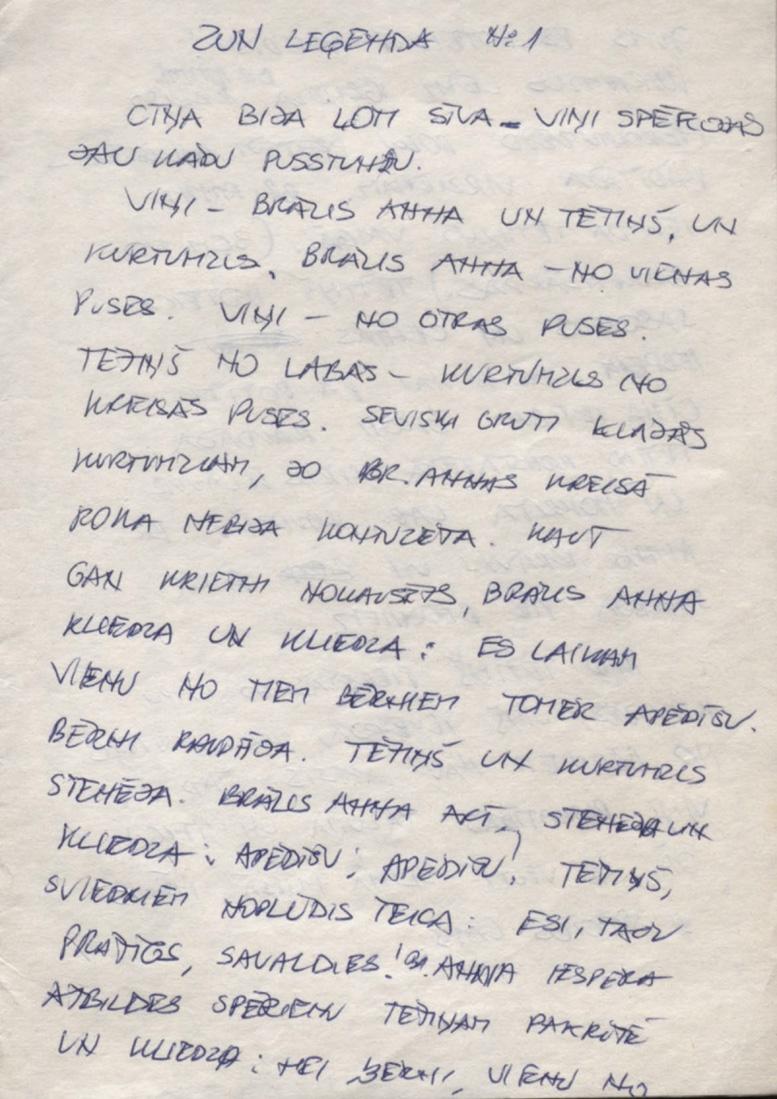 ZUN LEĢENDA No 1
CĪŅA BIJA ĻOTI SĪVA – VIŅI SPĒKOJĀS
JAU KĀDU PUSSTUNDU.
VIŅI – BRĀLIS ANNA UN TĒTIŅŠ, UN
KURTUMZLS, BRĀLIS ANNA – NO VIENAS
PUSES. VIŅI – NO OTRAS PUSES.
TĒTIŅŠ NO LABĀS – KURTUMZLS NO
KREISĀS PUSES. SEVIŠĶI GRŪTI KLĀJĀS
KURTUMZLAM, JO BR. ANNAS KREISĀ
ROKA NEBIJA KONTUZĒTA. KAUT
GAN KRIETNI NOKAUSĒTS, BRĀLIS ANNA
KLIEDZA UN KLIEDZA: ES LAIKAM
VIENU NO TIEM BĒRNIEM TOMĒR APĒDĪŠU.
BĒRNI RAUDĀJA. TĒTIŅŠ UN KURTUMZLS
STENĒJA. BRĀLIS ANNA ARĪ, STENĒJA UN
KLIEDZA: APĒDĪŠU! APĒDĪŠU! TĒTIŅŠ,
SVIEDRIEM NOPLŪDIS TEICA: ESI, TAČU
PRĀTĪGS, SAVALDIES! BR. ANNA IESPĒRA
ATBILDES SPĒRIENU TĒTIŅAM PAKRŪTĒ
UN KLIEDZA: HEI, BĒRNI, VIENU NO